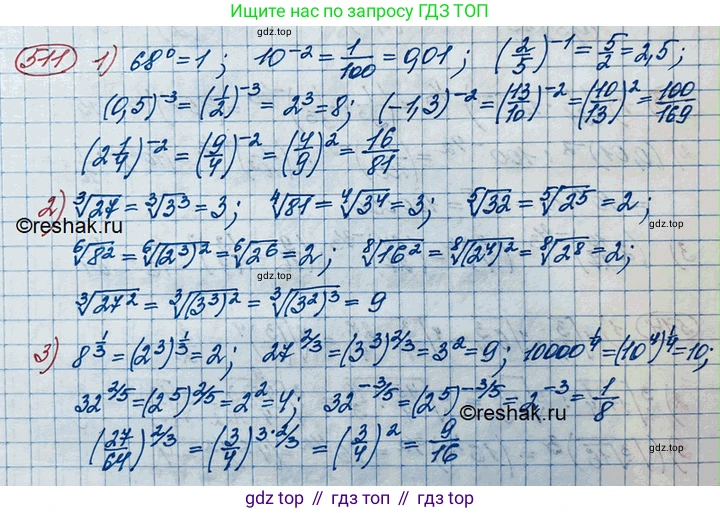 Ищите нас по запросу ГДЗ ТОП
gdz.top
511 1) 68⁰ = 1; 10⁻² = 1/100 = 0,01; (2/5)⁻¹ = 5/2 = 2,5;
(0,5)⁻³ = (1/2)⁻³ = 2³ = 8; (-1,3)⁻² = (13/10)⁻² = (10/13)² = 100/169
(2 1/4)⁻² = (9/4)⁻² = (4/9)² = 16/81
2) ∛27 = ∛3³ = 3; ⁴√81 = ⁴√3⁴ = 3; ⁵√32 = ⁵√2⁵ = 2;
©reshak.ru
gdz.top
⁶√8² = ⁶√(2³)² = ⁶√2⁶ = 2; ⁸√16² = ⁸√(2⁴)² = ⁸√2⁸ = 2;
gdz.top
∛27² = ∛(3³)² = ∛(3²)³ = 9
3) 8^(1/3) = (2³)^(1/3) = 2; 27^(2/3) = (3³)^(2/3) = 3² = 9; 10000^(1/4) = (10⁴)^(1/4) = 10;
32^(2/5) = (2⁵)^(2/5) = 2² = 4; 32^(-3/5) = (2⁵)^(-3/5) = 2⁻³ = 1/8
©reshak.ru
(27/64)^(2/3) = (3/4)^(3·2/3) = (3/4)² = 9/16
gdz.top
gdz.top // гдз топ // гдз.top